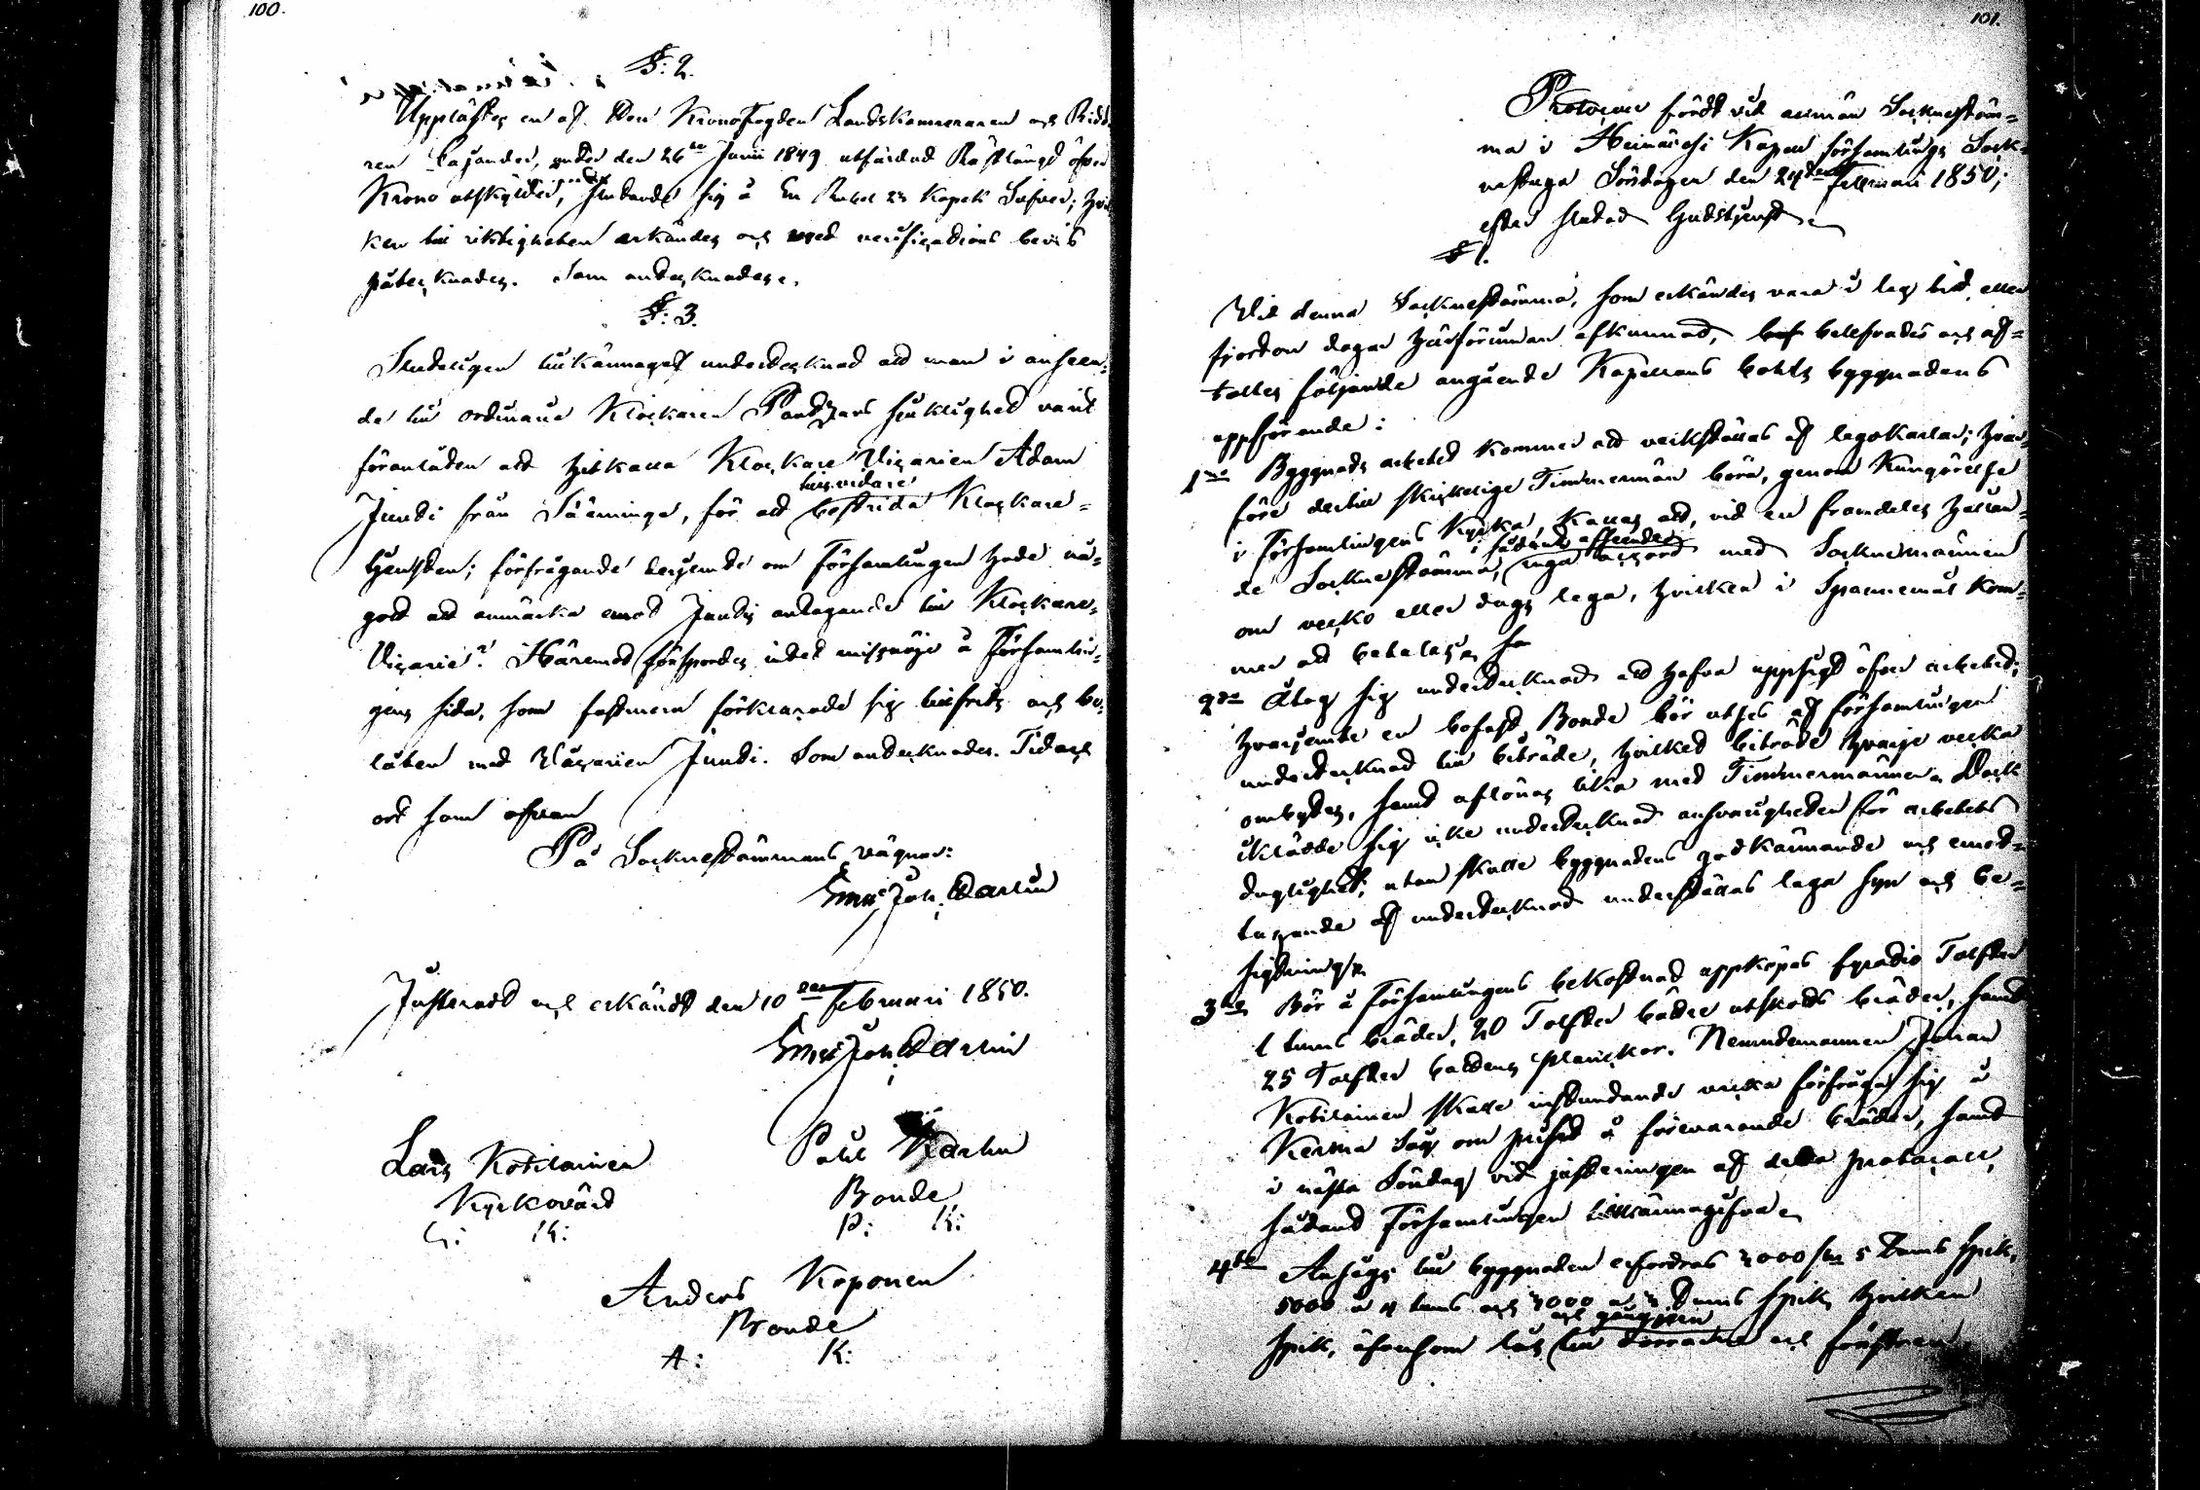 100.
§: 2.
Upplästes en af Herr Kronofogden Landskammeraren och Ridda-
ren Cajander, under den 26te Junii 1849 utfärdad Restlängd öfver
Krono utskylder, slutande sig å En Rubel 23 Kopek Silfver; hvil-
ken till riktigheten erkändes och med verifications bevis
påtecknades. Som antecknades.
§: 3.
Slutligen tillkännagaf undertecknad att man i anseen-
de till ordinarie Klockaren sjuklighet varit
föranlåten att hitkalla Klockare Vicarien Adam
tillsvidare
Jundi från Sääminge, för att bestrida Klockare-
tjensten; förfrågande derjemte om Församlingen hade nå-
got att anmärka emot Jundis antagande till Klockare-
Vicarie? Häremot försportes intet missnöje å Församlin-
gens sida, som fastmera förklarade sig tillfreds och be-
låten med Vicarien Jundi. Som antecknades. Tid och
ort som ofvan
På Sockenstämmans vägnar:
Joh: Carlin
Justeradt och erkändt den 10de Februari 1850.
Joh: Carlin
Lars Kotilainen
Kyrkovärd
L: K:
Påhl
Bonde
P: K:
Anders Koponen
Bonde
A: K:
101.
Protocoll fördt vid allmän Sockenstäm-
ma i Heinävesi Kapell församlings Sock-
nestuga Söndagen den 24de Februari 1850;
efter slutad Gudstjenst.
§ 1.
Vid denna Sockenstämma, som erkändes vara i lag tid, eller
fjorton dagar härförinnan afkunnad, beleffvades och af-
taltes följande angående Kapellans bohls byggnadens
uppförande:
1mo Byggnads arbetet kommer att verkställas af legokarlar; hvar-
före dertill skickelige Timmermän böra, genom Kungörelse
i Församlingens Kyrka, kallas att, vid en framdeles hållan-
i sådant afseende
de Sockenstämma, inga ackord med Sockenmännen
om vecko eller dags lega, hvilken i Spannemål kom-
mer att betalas.
2do Åtog sig undertecknad att hafva uppsigt öfver arbetet;
hvarjemte en bofast Bonde bör utses af församlingen
undertecknad till biträde, hvilket biträde hvarje vecka
ombytes, samt aflönas lika med Timmermännen. Dock
iklädde sig icke undertecknad ansvarigheten för arbetets
duglighet; utan skulle byggnadens godkännande och emot-
tagande af undertecknad underställas laga syn och be-
sigtning.
3tio Bör å Församlingens bekostnad uppköpas fyratio Tolfter
1 tums bräder, 20 Tolfter bättre utskotts bräder, samt
25 Tolfter plankor. Nemndemannen Johan
Kotilainen skulle instundande vecka förfråga sig å
Kerma Såg om priset å förevarande bräder, samt
i nästa Söndag vid justeringen af detta protocoll,
sådant Församlingen tillkännagifva.
4to Ansågs till byggnaden erfordras 2000 st. 5 Tums spik,
5000 à 4 tums och 3000 à 3 Tums spik, hvilken
och gångjern
spik, äfvensom lås till dörrarne och fönstren